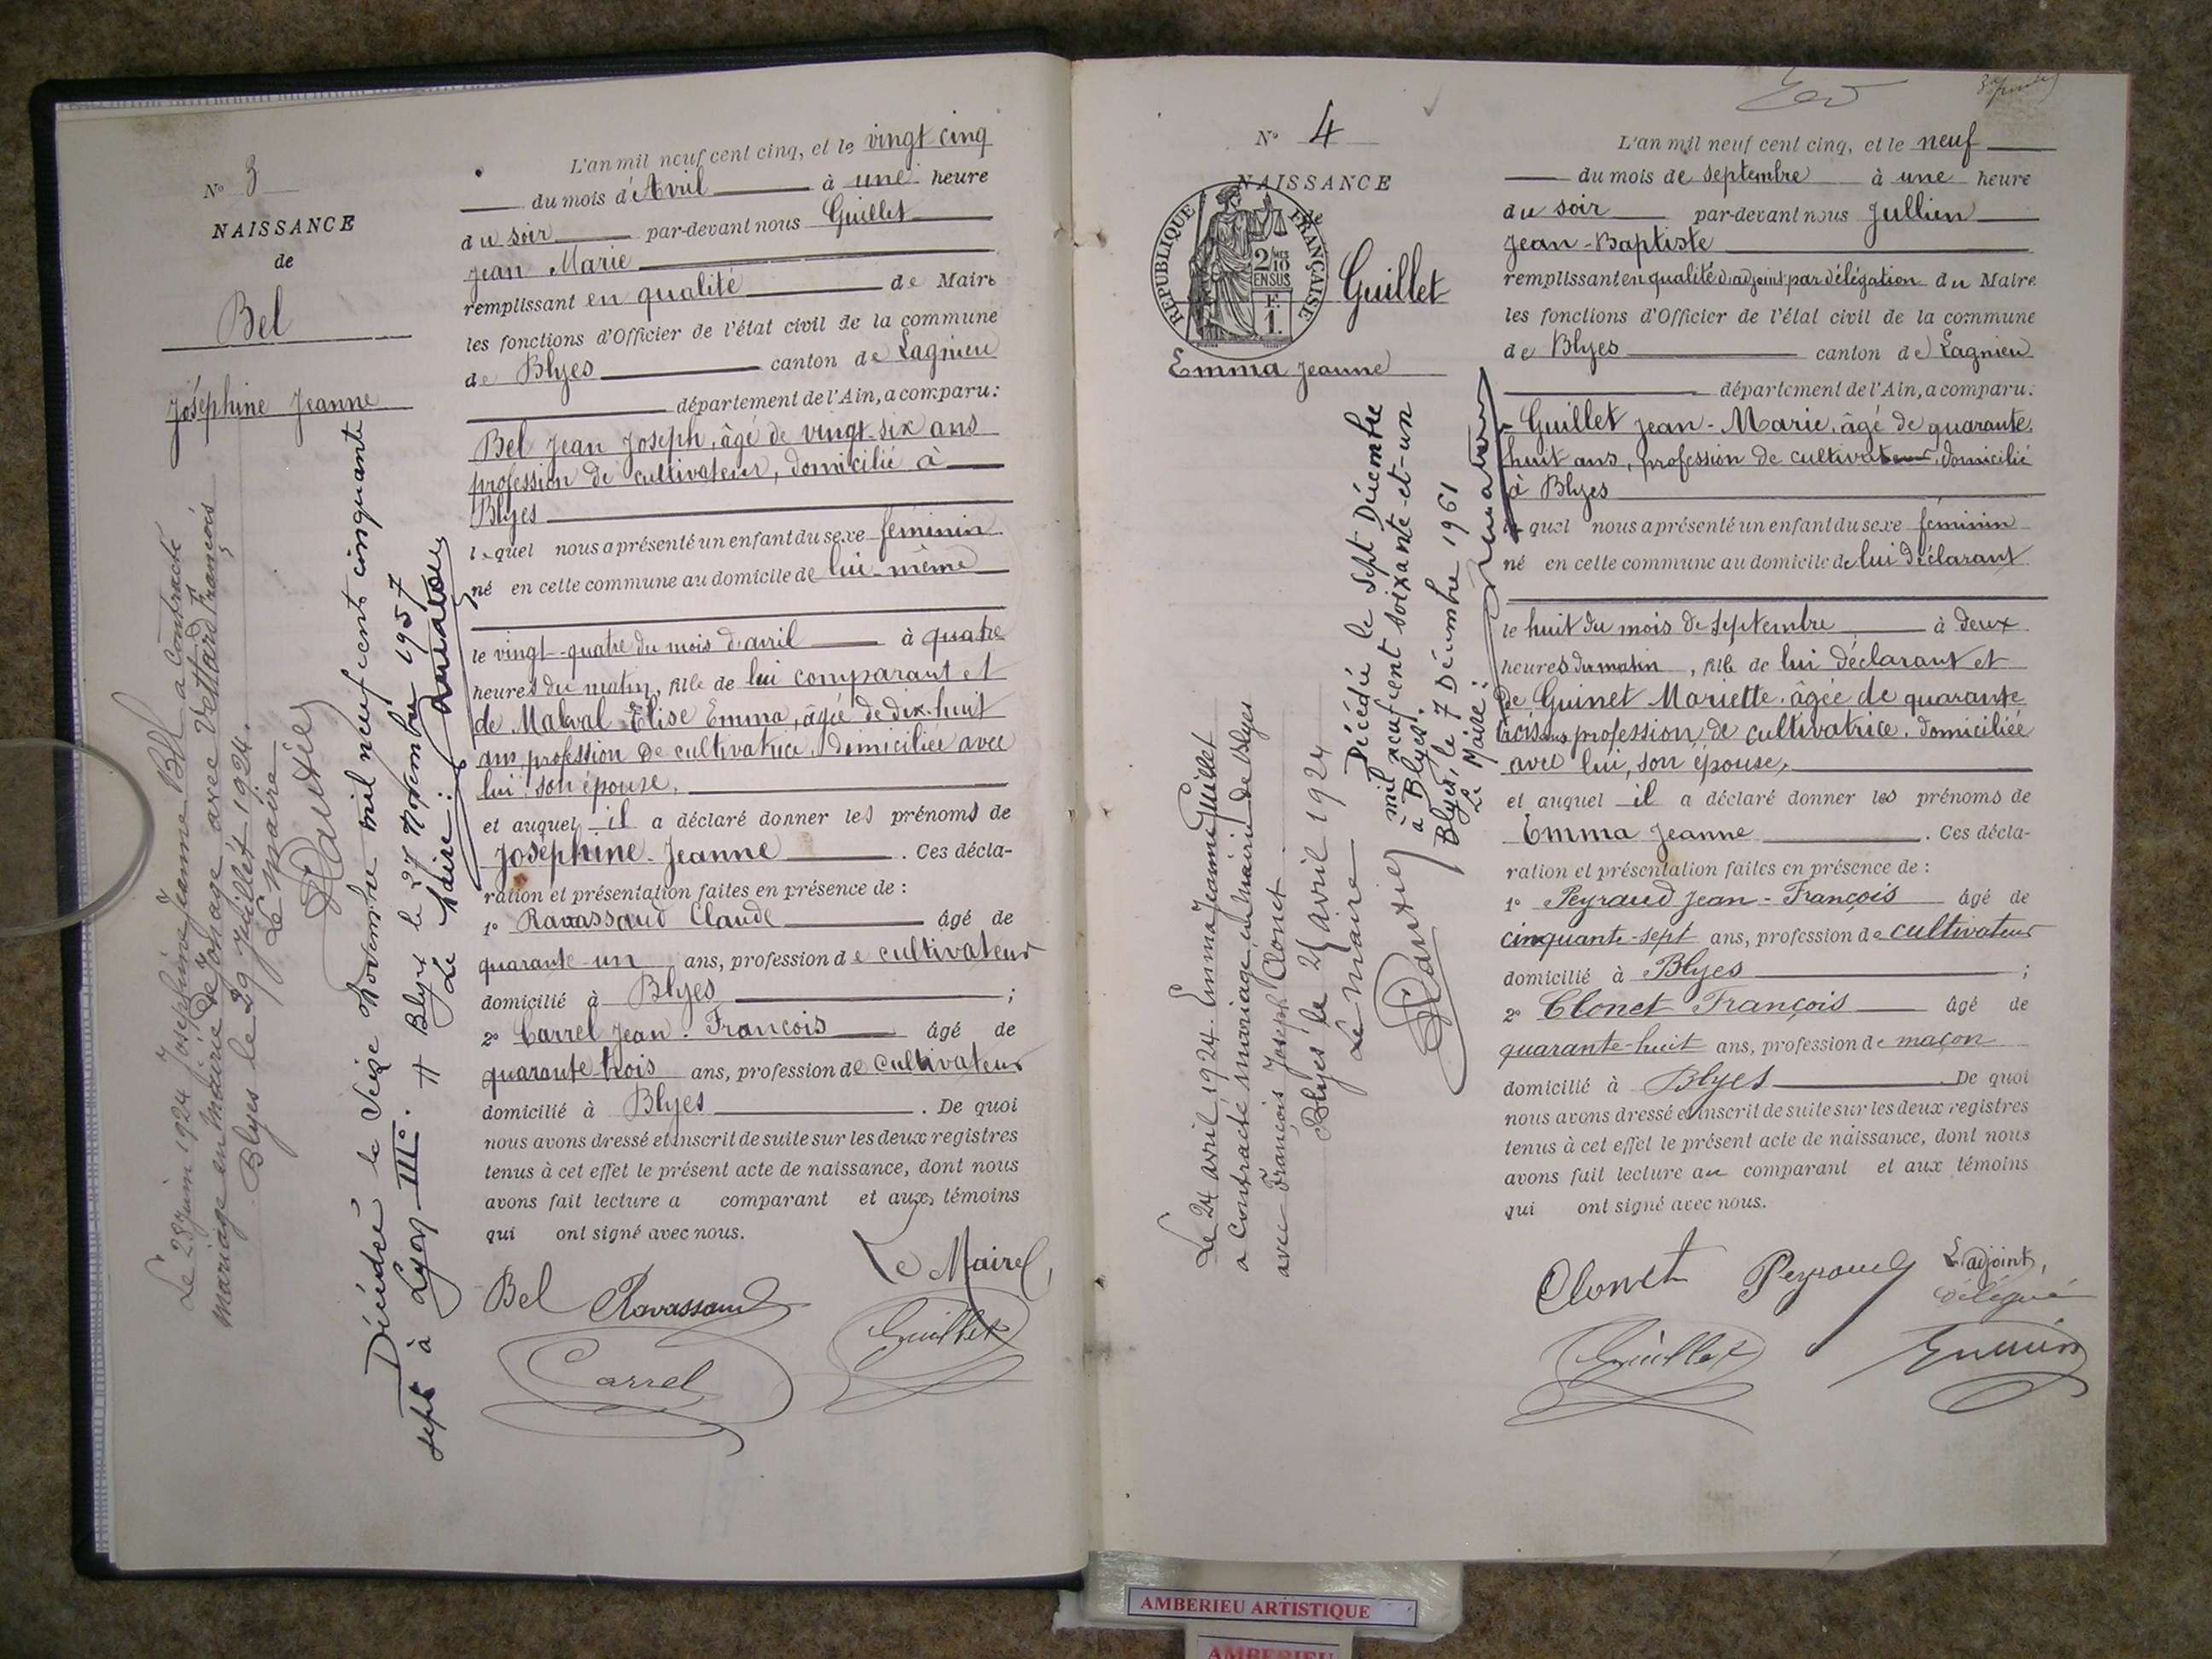 N° 3
NAISSANCE
de
Bel
Joséphine Jeanne
Le 28 juin 1924 Joséphine Jeanne Bel a contracté
mariage en mairie de Jonage avec Vettard François
Blyes le 29 juillet 1924.
Le Maire
Décédée le Seize Novembre mil neuf cent cinquante
sept à Lyon IIIe. # Blyes le 27 Novembre 1957
Le Maire :
L'an mil neuf cent cinq, et le vingt cinq
du mois d'Avril à une heure
du soir par-devant nous Guillet
Jean Marie
remplissant en qualité de Maire
les fonctions d'Officier de l'état civil de la commune
de Blyes canton de Lagnieu
département de l'Ain, a comparu:
Bel Jean Joseph, âgé de vingt-six ans
profession de cultivateur, domicilié à
Blyes
lequel nous a présenté un enfant du sexe féminin
né en cette commune au domicile de lui-même
le vingt-quatre du mois d'avril à quatre
heures du matin, fille de lui comparant et
de Malval Elise Emma, âgée de dix-huit
ans, profession de cultivatrice, domiciliée avec
lui, son épouse,
et auquel il a déclaré donner les prénoms de
Joséphine Jeanne. Ces décla-
ration et présentation faites en présence de :
1° Ravassaud Claude âgé de
quarante-un ans, profession de cultivateur
domicilié à Blyes ;
2° Carrel Jean-François âgé de
quarante trois ans, profession de cultivateur
domicilié à Blyes. De quoi
nous avons dressé et inscrit de suite sur les deux registres
tenus à cet effet le présent acte de naissance, dont nous
avons fait lecture a comparant et aux témoins
qui ont signé avec nous.
Le Maire,
Bel Ravassaud Guillet
Carrel
N° 4
NAISSANCE
de
RÉPUBLIQUE FRANÇAISE
2/10 EN SUS
F. 1.
Guillet
Emma Jeanne
Le 24 avril 1924 Emma Jeanne Guillet
a contracté mariage en mairie de Blyes
avec François Joseph Clonet
Blyes le 24 avril 1924
Le Maire
Décédée le sept Décembre
mil neuf cent soixante-et-un
à Blyes.
Blyes, le 7 Décembre 1961
Le Maire :
L'an mil neuf cent cinq, et le neuf
du mois de septembre à une heure
du soir par-devant nous Jullien
Jean-Baptiste
remplissant en qualité d'adjoint par délégation du Maire
les fonctions d'Officier de l'état civil de la commune
de Blyes canton de Lagnieu
département de l'Ain, a comparu:
Guillet Jean-Marie, âgé de quarante
huit ans, profession de cultivateur, domicilié
à Blyes
lequel nous a présenté un enfant du sexe féminin
né en cette commune au domicile de lui déclarant
le huit du mois de septembre à deux
heures du matin, fille de lui déclarant et
de Guinet Mariette, âgée de quarante
trois ans profession de cultivatrice, domiciliée
avec lui, son épouse,
et auquel il a déclaré donner les prénoms de
Emma Jeanne. Ces décla-
ration et présentation faites en présence de :
1° Peyraud Jean-François âgé de
cinquante-sept ans, profession de cultivateur
domicilié à Blyes ;
2° Clonet François âgé de
quarante-huit ans, profession de maçon
domicilié à Blyes. De quoi
nous avons dressé et inscrit de suite sur les deux registres
tenus à cet effet le présent acte de naissance, dont nous
avons fait lecture au comparant et aux témoins
qui ont signé avec nous.
Clonet Peyraud L'adjoint,
délégué
Guillet
AMBERIEU ARTISTIQUE
AMBERIEU